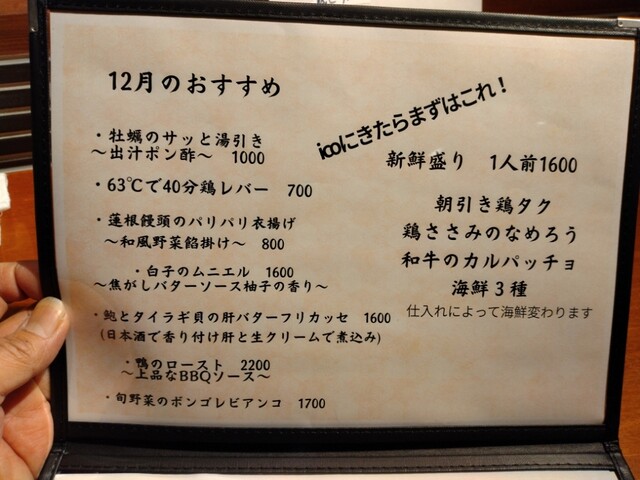 12月のおすすめ
・牡蠣のサッと湯引き
〜出汁ポン酢〜 1000
・63℃で40分鶏レバー 700
・蓮根饅頭のパリパリ衣揚げ
〜和風野菜餡掛け〜 800
・白子のムニエル 1600
〜焦がしバターソース柚子の香り〜
・鮑とタイラギ貝の肝バターフリカッセ 1600
(日本酒で香り付け肝と生クリームで煮込み)
・鴨のロースト 2200
〜上品なBBQソース〜
・旬野菜のボンゴレビアンコ 1700
icoiにきたらまずはこれ！
新鮮盛り 1人前1600
朝引き鶏タク
鶏ささみのなめろう
和牛のカルパッチョ
海鮮３種
仕入れによって海鮮変わります